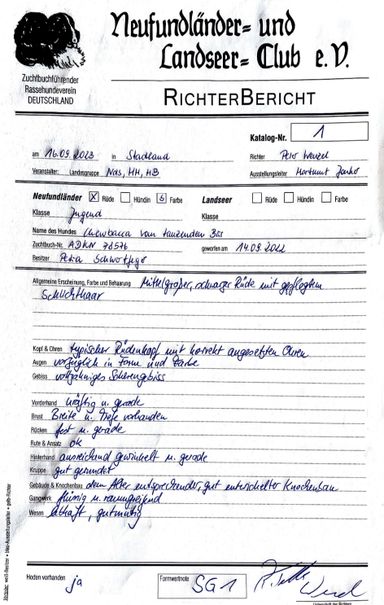 Neufundländer- und
Landseer- Club e.V.
Zuchtbuchführender
Rassehundeverein
DEUTSCHLAND
RICHTERBERICHT
Katalog-Nr. 1
am 16.09.2023 in Stadland Richter Peter Wenzel
Veranstalter: Landesgruppe Nds, HH, HB Ausstellungsleiter Hartmut
Neufundländer X Rüde Hündin Farbe Landseer Rüde Hündin Farbe
Klasse Jugend Klasse
Name des Hundes Chewbacca vom tanzenden Bär
Zuchtbuch-Nr. ADKN 78576 geworfen am 14.09.2022
Besitzer Petra
Allgemeine Erscheinung, Farbe und Behaarung Mittelgroßer, schwarzer Rüde mit gepflegtem
Schlichthaar
Kopf & Ohren typischer Rüdenkopf mit korrekt angesetzten Ohren
Augen vorzüglich in Form und Farbe
Gebiss vollzahniges Scherengebiss
Vorderhand kräftig u. gerade
Brust Breite u. Tiefe vorhanden
Rücken fest u. gerade
Rute & Ansatz ok
Hinterhand ausreichend gewinkelt u. gerade
Kruppe gut gerundet
Gebäude & Knochenbau dem Alter entsprechender, gut entwickelter Knochenbau
Gangwerk flüssig u. raumgreifend
Wesen lebhaft, gutmütig
Hoden vorhanden ja
Formwertnote SG 1